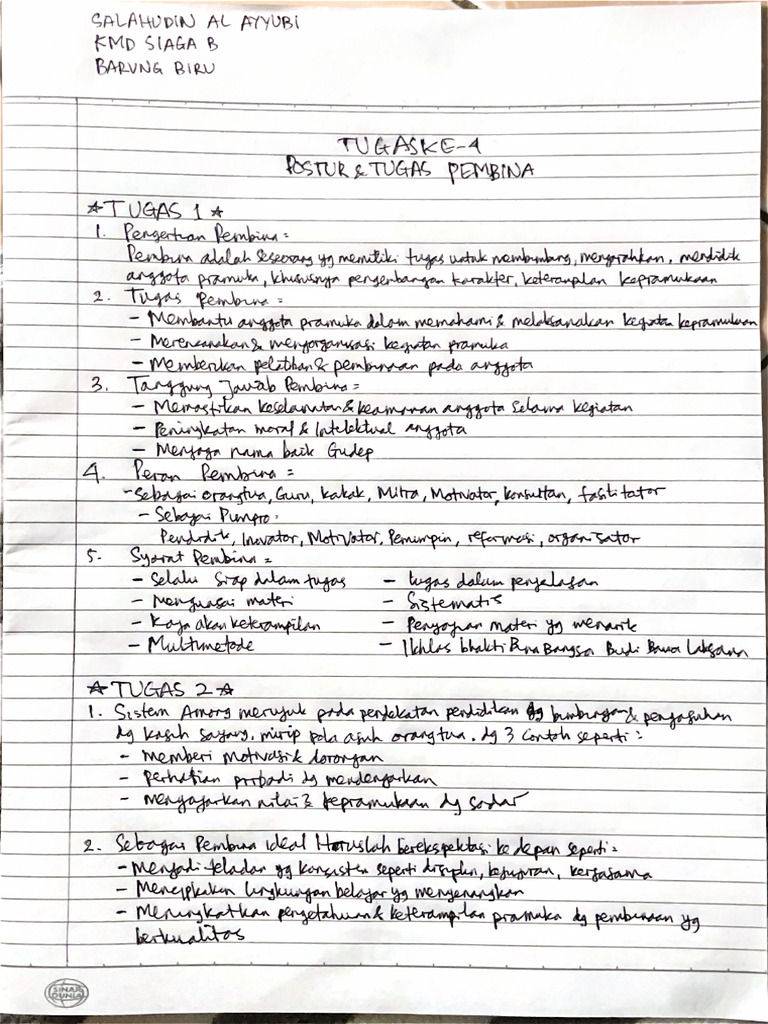 SALAHUDIN AL AYYUBI
KMD SIAGA B
BARUNG BIRU
TUGAS KE-4
POSTUR & TUGAS PEMBINA
☆TUGAS 1☆
1. Pengertian Pembina =
Pembina adalah seseorang yg memiliki tugas untuk membimbing, mengarahkan, mendidik
anggota pramuka, khususnya pengembangan karakter, keterampilan kepramukaan
2. Tugas Pembina =
- Membantu anggota pramuka dalam memahami & melaksanakan kegiatan kepramukaan
- Merencanakan & mengorganisasi kegiatan pramuka
- Memberikan pelatihan & pembinaan pada anggota
3. Tanggung Jawab Pembina =
- Memastikan keselamatan & keamanan anggota selama kegiatan
- Peningkatan moral & Intelektual anggota
- Menjaga nama baik Gudep
4. Peran Pembina =
- Sebagai orangtua, Guru, kakak, Mitra, Motivator, konsultan, fasilitator
- Sebagai Pimpro:
Pendidik, Inovator, Motivator, Pemimpin, reformasi, organisator
5. Syarat Pembina =
- Selalu Siap dalam tugas - lugas dalam penjelasan
- Menguasai materi - Sistematis
- Kaya akan keterampilan - Penyajian materi yg menarik
- Multimetode - Ikhlas bhakti Bina Bangsa Budi Bawa Laksana
☆TUGAS 2☆
1. Sistem Among merujuk pada pendekatan pendidikan dg bimbingan & pengasuhan
dg kasih sayang, mirip pola asuh orangtua. dg 3 Contoh seperti:
- memberi motivasi & dorongan
- Perhatian pribadi dg mendengarkan
- mengajarkan nilai2 kepramukaan dg sadar
2. Sebagai Pembina ideal Haruslah berekspektasi ke depan seperti =
- Menjadi teladan yg konsisten seperti disiplin, kejujuran, kerjasama
- Menciptakan lingkungan belajar yg menyenangkan
- Meningkatkan pengetahuan & keterampilan pramuka dg pembinaan yg
berkualitas
SINAR
DUNIA